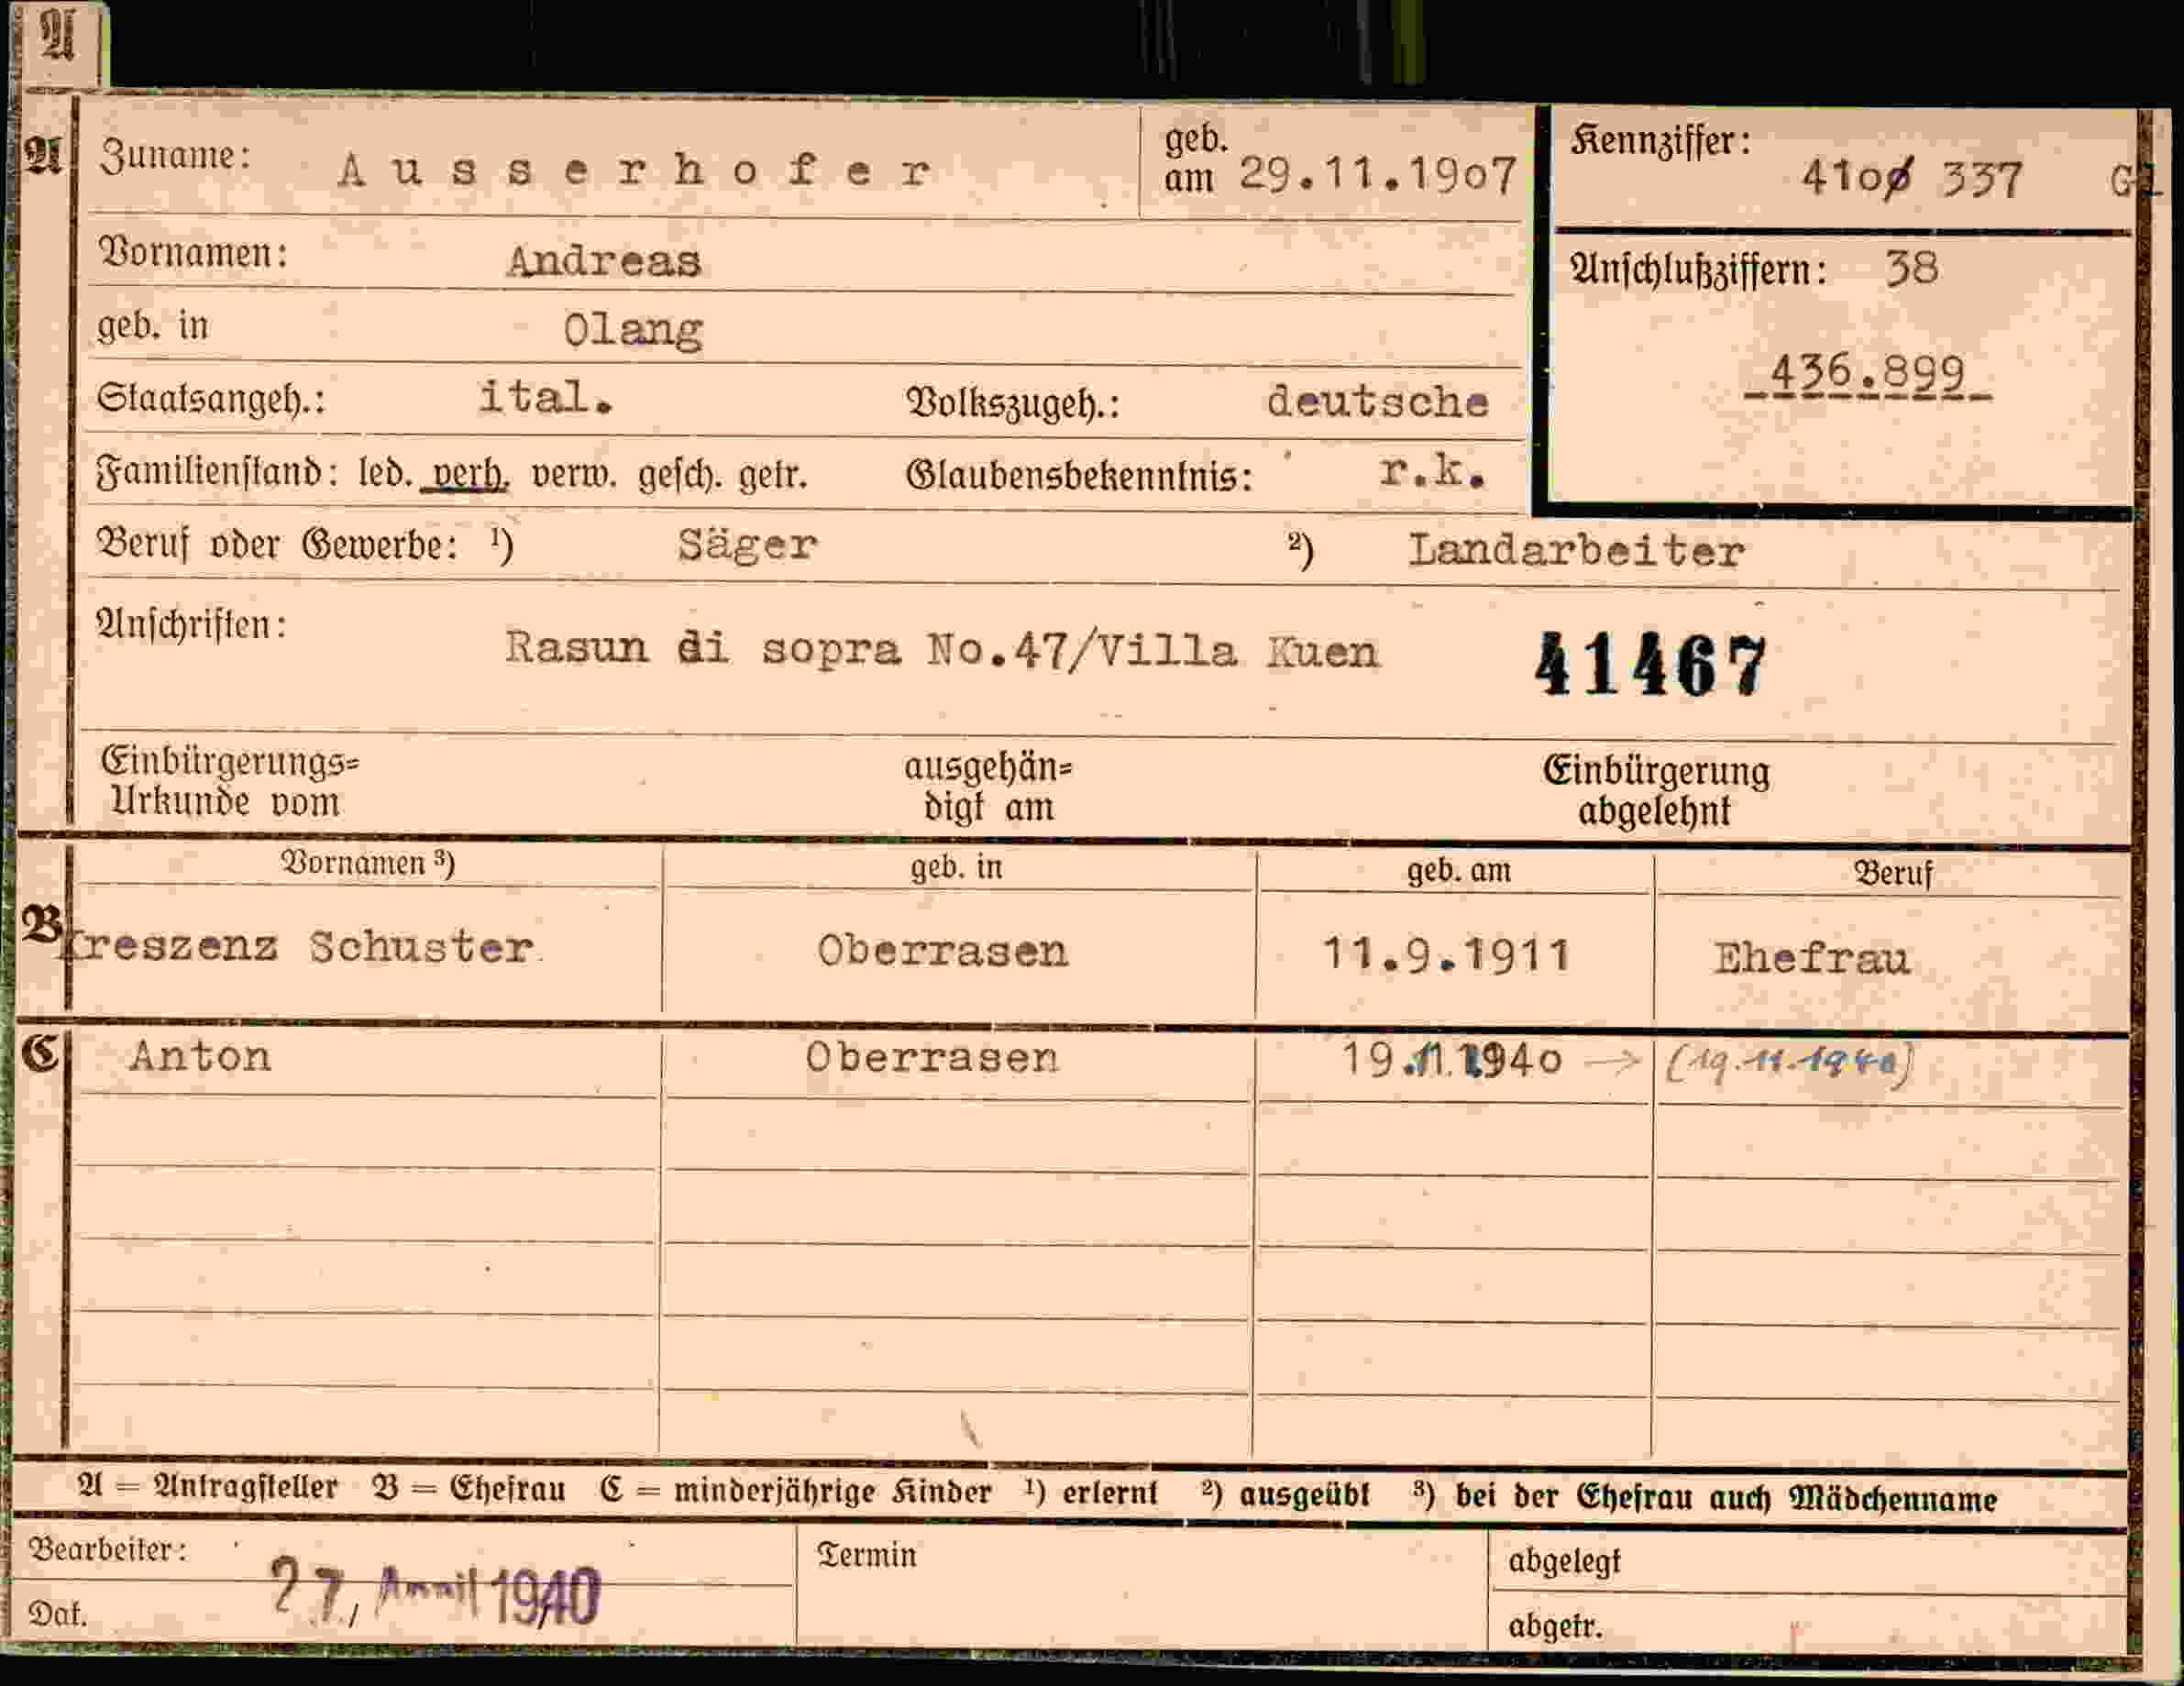 A
A Zuname: Ausserhofer geb. am 29.11.1907 Kennziffer: 4100 337
Vornamen: Andreas Anschlußziffern: 38
geb. in Olang
436.899
Staatsangeh.: ital. Volkszugeh.: deutsche
Familienstand: led. verh. verw. gesch. getr. Glaubensbekenntnis: r.k.
Beruf oder Gewerbe: ¹) Säger ²) Landarbeiter
Anschriften: Rasun di sopra No.47/Villa Kuen 41467
Einbürgerungs= ausgehän= Einbürgerung
Urkunde vom digt am abgelehnt
Vornamen ³) geb. in geb. am Beruf
B Kreszenz Schuster Oberrasen 11.9.1911 Ehefrau
C Anton Oberrasen 19.11.1940 → (19.11.1940)
A = Antragsteller B = Ehefrau C = minderjährige Kinder ¹) erlernt ²) ausgeübt ³) bei der Ehefrau auch Mädchenname
Bearbeiter: Termin abgelegt
27. April 1940
Dat. abgetr.